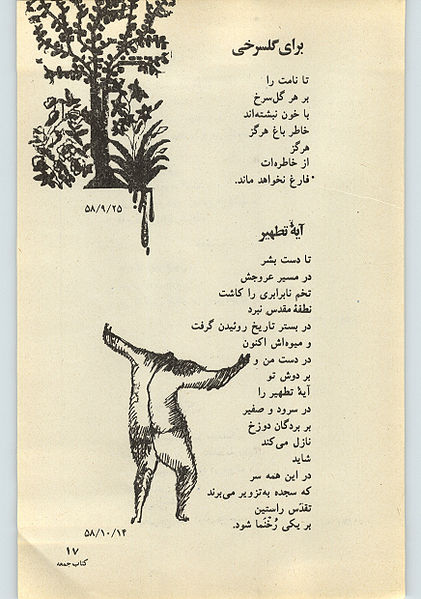 برای گلسرخی
تا نامت را
بر هر گل‌سرخ
با خون نبشته‌اند
خاطر باغ هرگز
هرگز
از خاطره‌ات
فارغ نخواهد ماند.
۵۸/۹/۲۵
آیهٔ تطهیر
تا دست بشر
در مسیر عروجش
تخم نابرابری را کاشت
نطفهٔ مقدس نبرد
در بستر تاریخ روئیدن گرفت
و میوه‌اش اکنون
در دست من و
بر دوش تو
آیهٔ تطهیر را
در سرود و صفیر
بر بردگان دوزخ
نازل می‌کند
شاید
در این همه سر
که سجده به‌تزویر می‌برند
تقدّس راستین
بر یکی رُخْنما شود.
۵۸/۱۰/۱۴
۱۷
کتاب جمعه